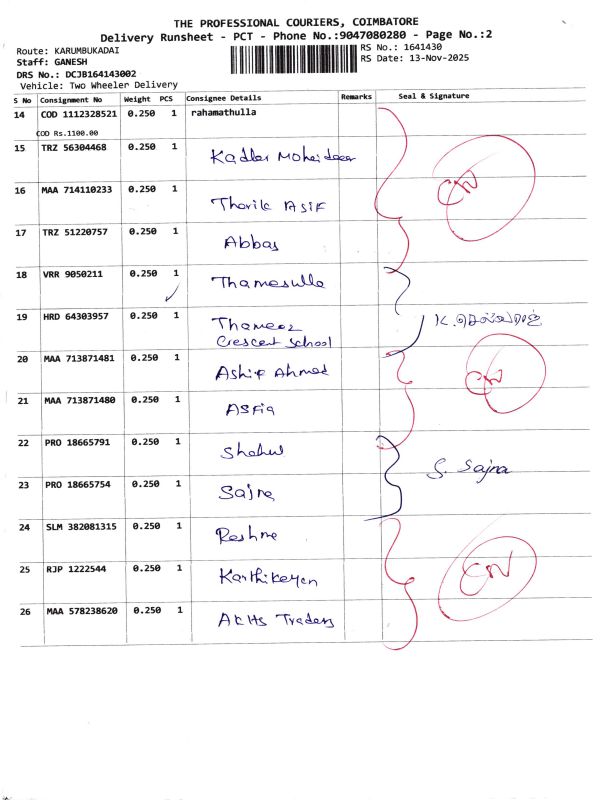 THE PROFESSIONAL COURIERS, COIMBATORE
Delivery Runsheet - PCT - Phone No.:9047080280 - Page No.:2
Route: KARUMBUKADAI
RS No.: 1641430
Staff: GANESH
RS Date: 13-Nov-2025
DRS No.: DCJB164143002
Vehicle: Two Wheeler Delivery
S No Consignment No Weight PCS Consignee Details Remarks Seal & Signature
14 COD 1112328521 0.250 1 rahamathulla
COD Rs.1100.00
15 TRZ 56304468 0.250 1 Kadler Moheideen
16 MAA 714110233 0.250 1 Tharik Asif
17 TRZ 51220757 0.250 1 Abbas
18 VRR 9050211 0.250 1 Thamesulla
19 HRD 64303957 0.250 1 Thameez
Crescent School
K. செல்வராஜ்
20 MAA 713871481 0.250 1 Ashif Ahmed
21 MAA 713871480 0.250 1 Asfia
22 PRO 18665791 0.250 1 Shahul
23 PRO 18665754 0.250 1 Sajna
S. Sajna
24 SLM 382081315 0.250 1 Reshme
25 RJP 1222544 0.250 1 Karthikeyen
26 MAA 578238620 0.250 1 AKHS Traders